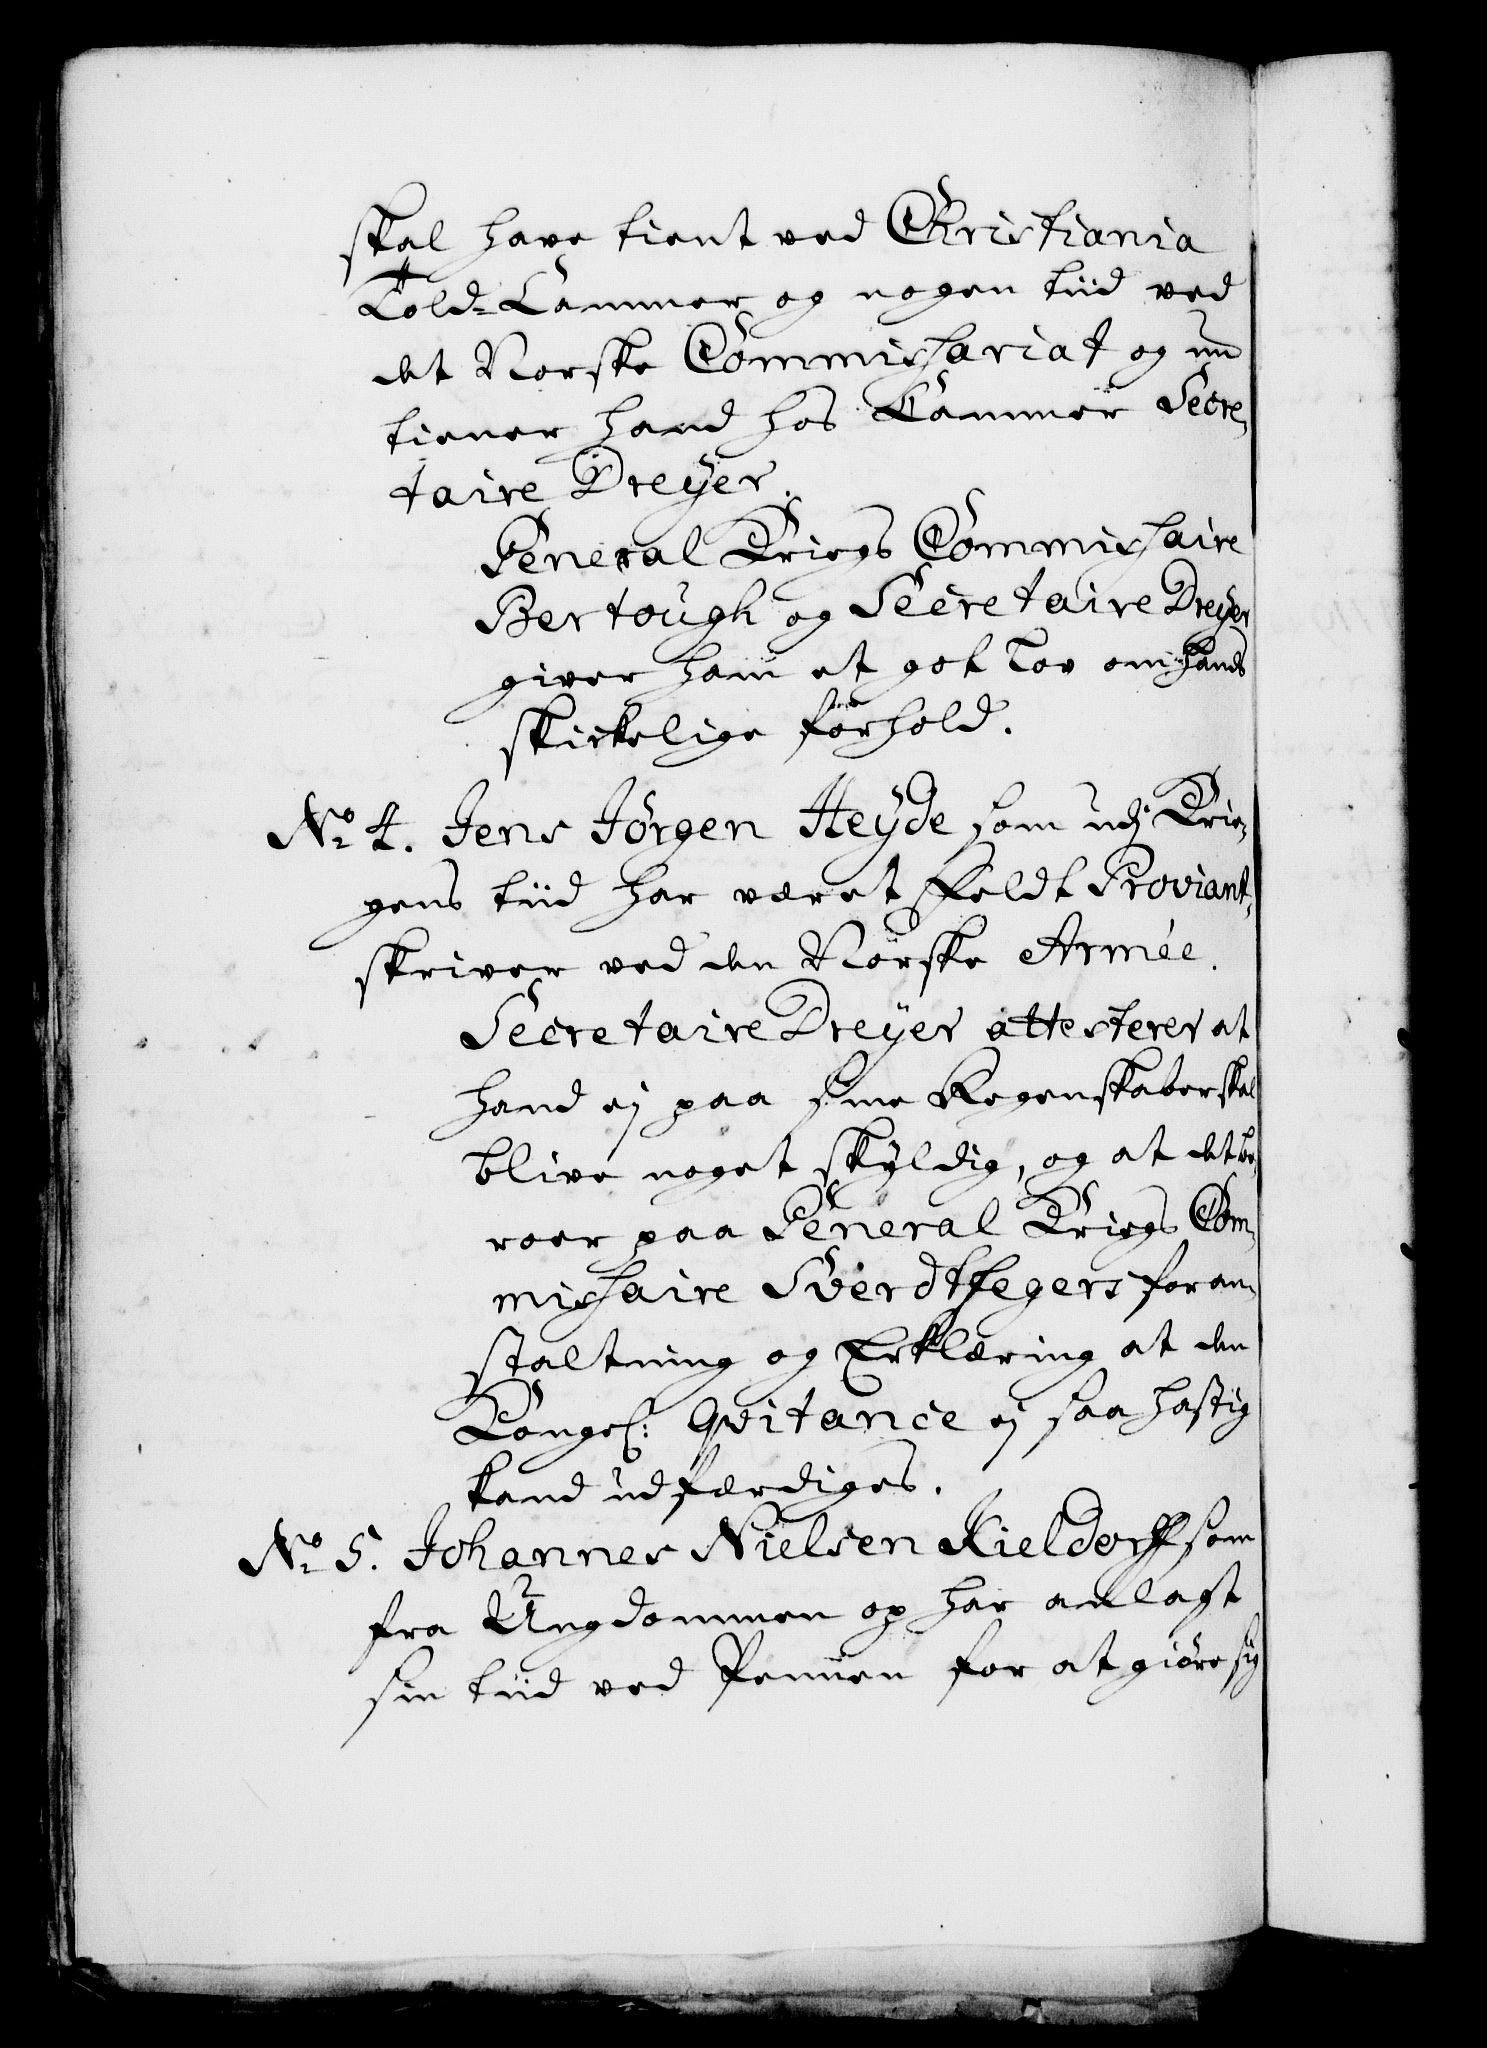 skal have tient ved Christiania
Told-Cammer og nogen tiid ved
det Norske Commishariat og nu
tiener hand hos Cammer Secre-
taire Dreÿer.
General Kriegs Commishaire
Bertough og Secretaire Dreÿer
giver ham et got Lov om hands
skikelige forhold.
No. 4. Jens Jörgen Heÿde som udj Krie-
gens tiid har været Feldt Proviant-
skriver ved den Norske Armée.
Secretaire Dreÿer attesterer at
hand ej paa sine Regenskaber skal
blive noget skÿldig, og at det be-
roer paa General Kriegs Com-
mishaire Sverdtfegers foran-
staltning og Erklæring at den
Kongel: Qvitance ej saa hastig
kand udfærdiges.
No. 5. Johannes Nielsen Kieldorff som
fra Ungdommen op har anlagt
sin tiid ved Pennen for at giöre sig